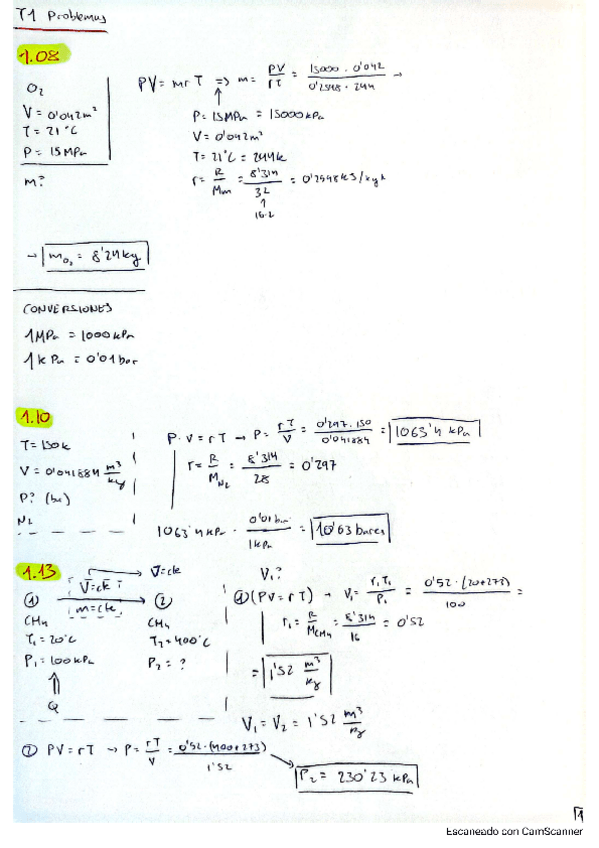 T1 Problemas
1.08
O₂
V = 0'042m³
T = 21°C
P = 15MPa
m?
PV = mrT => m = PV/rT = 15000 · 0'042 / 0'2598 · 294 →
P = 15MPa = 15000kPa
V = 0'042m³
T = 21°C = 294k
r = R/Mm = 8'314/32 = 0'2598
16·2
→ mo₂ = 8'24kg
CONVERSIONES
1MPa = 1000kPa
1kPa = 0'01bar
1.10
T = 150k
V = 0'041884 m³/kg
P? (bar)
N₂
P·V = rT → P = rT/V = 0'297·150/0'041884 = 1063'4 kPa
r = R/M N₂ = 8'314/28 = 0'297
1063'4kPa · 0'01bar/1kPa = 10'63 bares
1.13
V=ck
V=ck
m=ck
① ②
CH₄ CH₄
T₁=20°C T₂=400°C
P₁=100kPa P₂=?
Q
V₁?
① (PV=rT) → V₁ = r₁T₁/P₁ = 0'52·(20+273)/100 =
r₁ = R/M CH₄ = 8'314/16 = 0'52
= 1'52 m³/kg
V₁ = V₂ = 1'52 m³/kg
② PV=rT → P = rT/V = 0'52·(400+273)/1'52
P₂ = 230'23 kPa
1
Escaneado con CamScanner